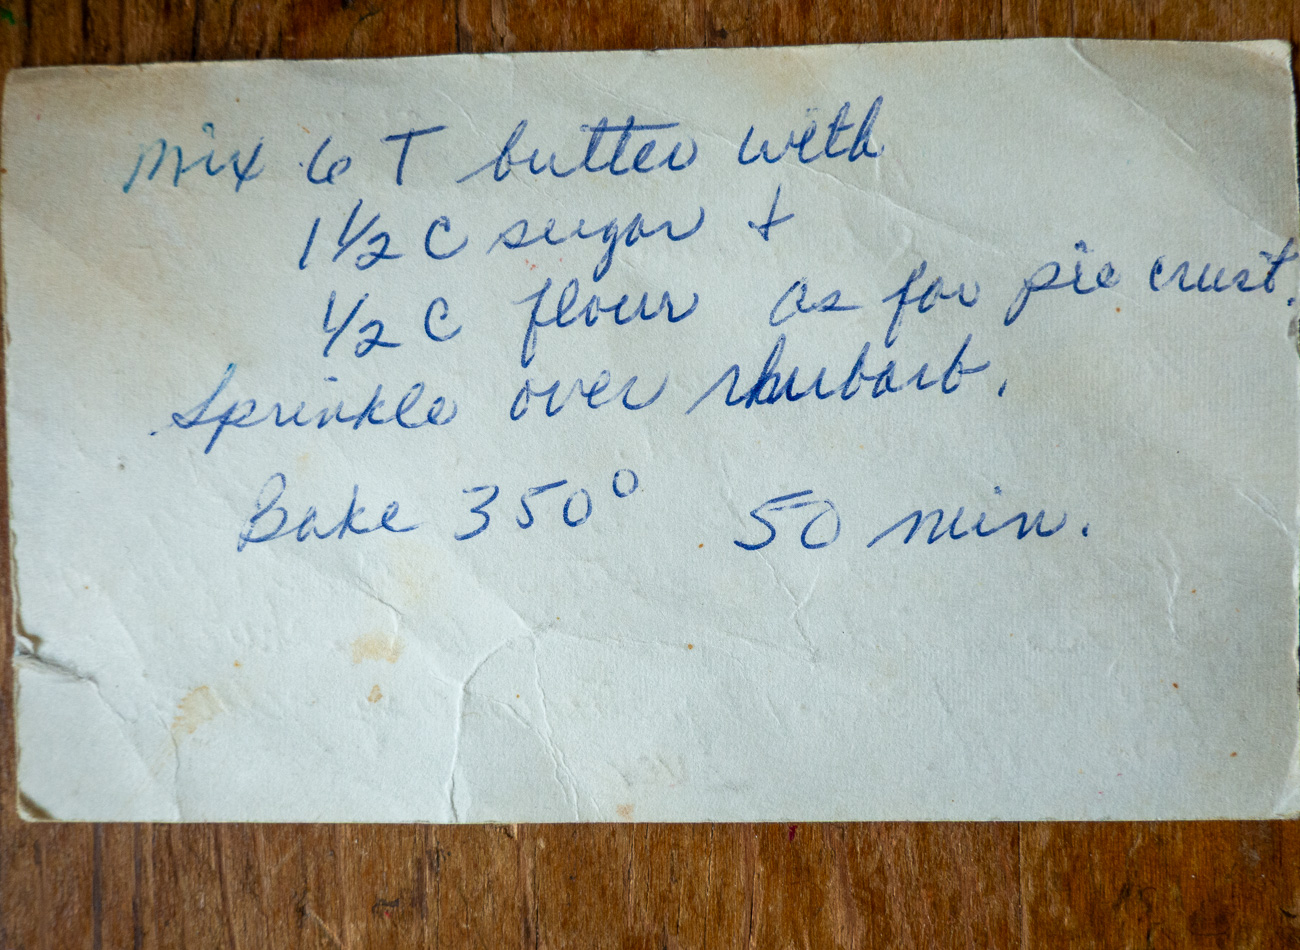 Mix 6 T butter with
1 1/2 C sugar +
1/2 C flour as for pie crust.
Sprinkle over rhubarb.
Bake 350° 50 min.